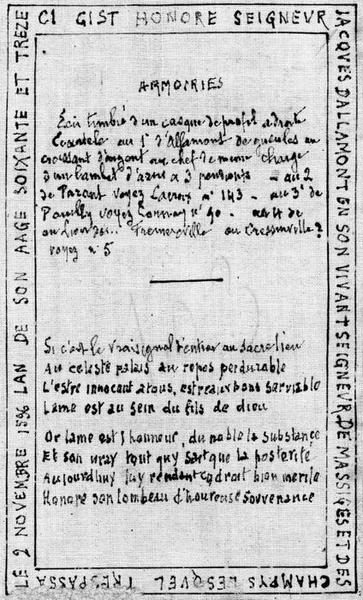 CI GIST HONORE SEIGNEUR
JACQUES DALLAMONT EN SON VIVANT SEIGNEUR DE MASSIGES ET DES
CHAMPYS LESQVEL TRESPASSA
LE 2 NOVEMBRE 1596 LAN DE SON AAGE SOIXANTE ET TREZE
ARMOIRIES
Ecu timbré d'un casque de profil a droite
Ecartelé au 1er d'Allamont de gueules au
croissant d'argent au chef de meme chargé
d'un lambel d'azur a 3 pendants - au 2
de Parant voyez Lacroix n° 143 - au 3e de
Pouilly voyez Connay n° 90 - au 4 de
au Lion de... Fremereville ou Cressinville?
voyez n° 5
Si c'est le vrai signal d'entrer au sacre lieu
Au celeste palais au repos perdurable
L'estre innocent a tous, estre aux bons serviable
Lame est au sein du fils de dieu
Or lame est l'honneur, du noble la substance
Et son vray tout qui sait que la posterité
Aujourdhuy luy rendent cy droit bien merité
Honore son tombeau d'heureuse souvenance